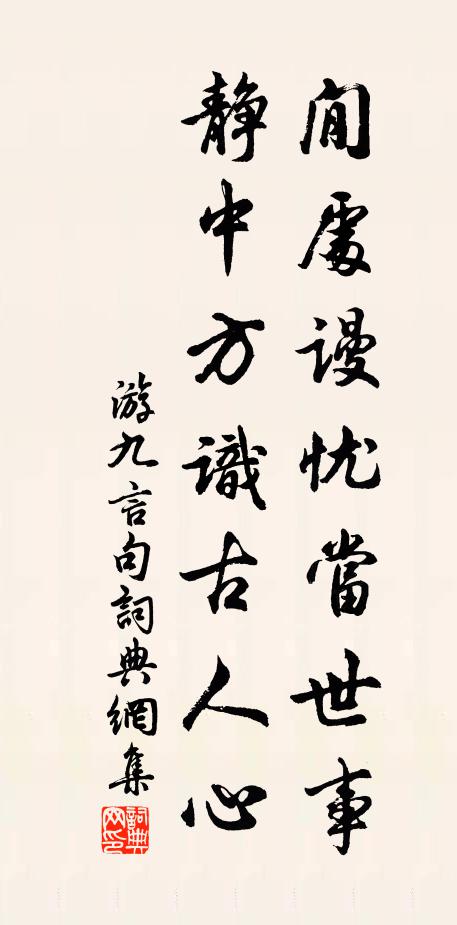 閒處謾忧當世事
静中方識古人心
游九言句詞典網集
詞典网印